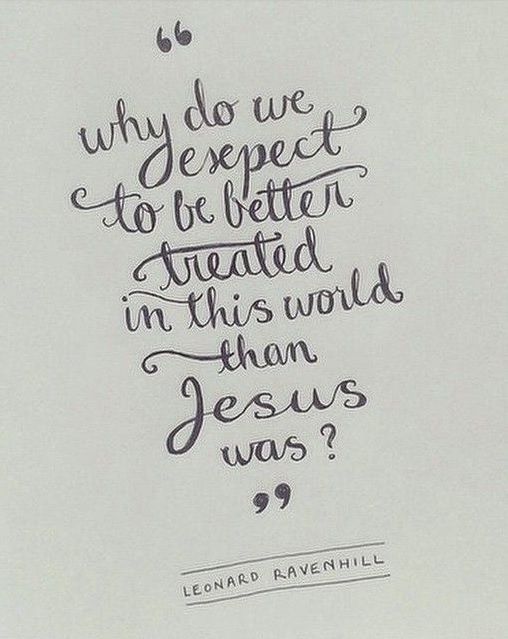 “
why do we
expect
to be better
treated
in this world
than
Jesus
was?
”
LEONARD RAVENHILL